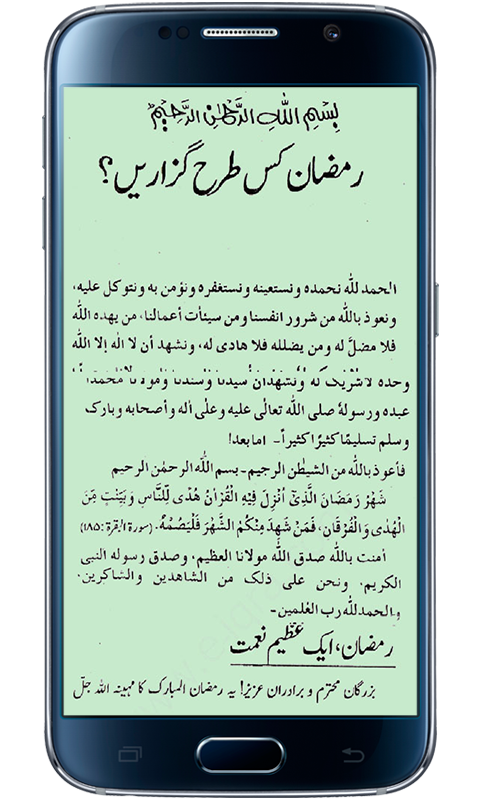 بِسْمِ اللهِ الرَّحْمٰنِ الرَّحِيْمِ
رمضان کس طرح گزاریں؟
الحمد لله نحمده ونستعينه ونستغفره ونؤمن به ونتوكل عليه،
ونعوذ بالله من شرور انفسنا ومن سيئات أعمالنا، من يهده الله
فلا مضلّ له ومن يضلله فلا هادى له، ونشهد أن لا اله إلا الله
وحده لاشريك له ونشهدان سيدنا وسندنا ومولانا محمدا
عبده ورسولهٗ صلى الله تعالٰى عليه وعلٰى أله وأصحابه وبارك
وسلم تسليمًا كثيرًا كثيراً۔ امابعد!
فأعوذ بالله من الشيطٰن الرجيم۔ بسم اللّٰه الرحمٰن الرحيم
شَهْرُ رَمَضَانَ الَّذِىْ اُنْزِلَ فِيْهِ الْقُرْاٰنُ هُدًى لِّلنَّاسِ وَبَيِّنٰتٍ مِّنَ
الْهُدٰى وَالْفُرْقَانِ، فَمَنْ شَهِدَ مِنْكُمُ الشَّهْرَ فَلْيَصُمْهُ. (سورۃ البقرۃ :۱۸۵)
أمنت بالله صدق اللّٰه مولانا العظيم، وصدق رسوله النبى
الكريم، ونحن على ذلك من الشاهدين والشاكرين،
والحمدلله رب العٰلمين۔
رمضان، ایک عظیم نعمت
بزرگان محترم و برادران عزیز! یہ رمضان المبارک کا مہینہ اللہ جلّ